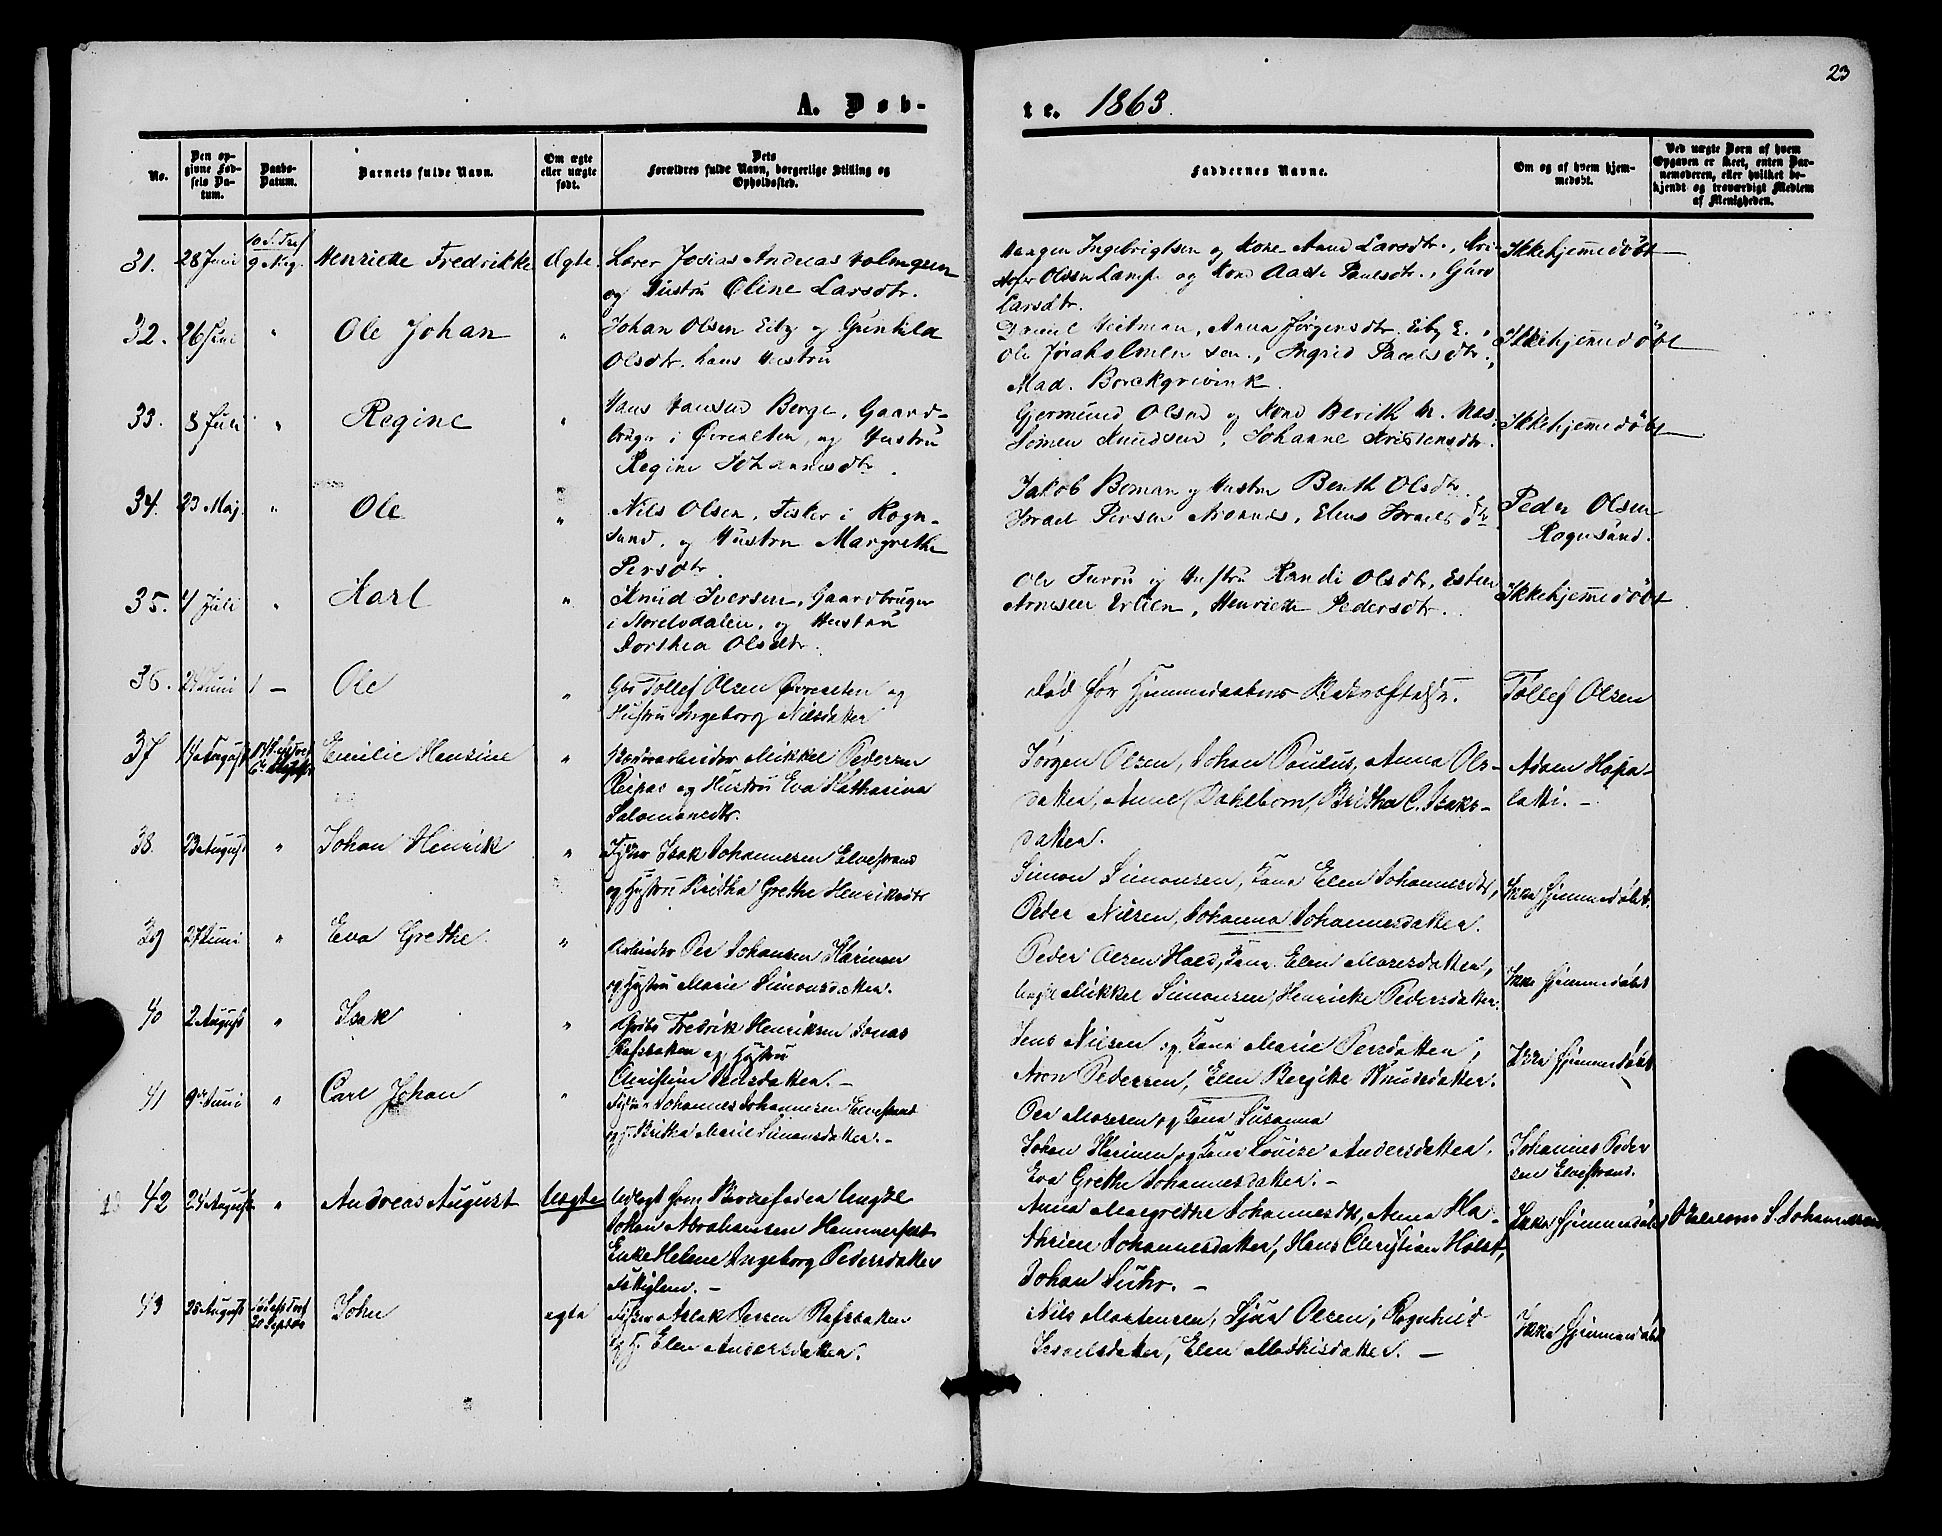 23
A. Døb-
te. 1863.
No.
Den op-
givne Fød-
sels Da-
tum.
Daabs-
Datum.
Barnets fulde Navn.
Om ægte
eller uægte
født.
Dets
Forældres fulde Navn, borgerlige Stilling og
Opholdssted.
Faddernes Navne.
Om og af hvem hjem-
medøbt.
Ved uægte Børn af hvem
Opgaven er skeet, enten Bar-
nemoderen, eller hvilket be-
kjendt og troværdigt Medlem
af Menigheden.
31. 28 Juni
9 Aug.
Henriette Fredrikke
Ægte.
Lærer Josias Andreas Holmgren
og Hustru Oline Larsdtr.
Ingebrigtsen og Kone Anne Larsdtr., Kri-
stofer Olsen Kamp og Kone Aase Paulsdtr., Guro
Larsdtr.
Ikkehjemmedöbt
32. 26 Juni
"
Ole Johan
"
Johan Olsen Eiby og Gunhild
Olsdtr. hans Hustru
Daniel Heitman, Anna Jørgensdtr. Eiby E.,
Ole Joraholmen sen., Ingrid Paulsdtr.,
Mad. Borchgrevink.
Ikkehjemmedöbt
33. 8 Juli
"
Regine
"
Hans Hansen Berge, Gaard-
bruger i Øvrealten, og Hustru
Regine Johannesdtr.
Gjermund Olsen og Kone Berith M. Næs
Simen Knudsen, Johanne Kristensdtr.
Ikkehjemmedöbt
34. 23 Maj.
"
Ole
"
Nils Olsen, Fisker i Rogn-
sund, og Hustru Margrethe
Persdtr.
Jakob Boman og Hustru Berith Olsdtr.
Israel Persen Aronnes, Elens Israelsdtr
Peder Olsen
Rognsund.
35. 4 Juli
"
Karl
"
Knud Iversen, Gaardbruger
i Storelvdalen, og Hustru
Dorthea Olsdtr.
Ole Furru og Hustru Randi Olsdtr, Esten
Arnesen Erlien, Henriette Pedersdtr.
Ikkehjemmedöbt
36. 24 Juni
-
Ole
"
Gbr Tollef Olsen Øvrealten og
Hustru Ingeborg Nilsdatter
død før Hjemmedaabens Bekræftelse.
Tollef Olsen
37 14 August
Emilie Hansine
"
Mikkel Pedersen
Reipas og Hustru Eva Katharina
Salomonsdtr.
Jørgen Olsen, Johan Paulus, Anna Ols-
datter, Anne Dahlborn, Britha C. Isaks-
datter.
Adam Hapa-
latti. -
38. 23 August
"
Johan Henrik
"
Fisker Isak Johannesen Elvestrand
og Hustru Britha Grethe Henriksdtr
Simon Simonsen, Kone Elen Johannesdtr,
Peder Nilsen, Johanna Johannesdatter.
Ikke Hjemmedøbt.
39 27 Juni
"
Eva Grethe
"
Arbeider Per Johansen Karinen
og Hustru Marie Simonsdatter.
Peder Olsen Hald, Kone Elen Marie
Ungkl Mikkel Simonsen, Henrikke Pedersdatter.
Ikke Hjemmedøbt
40 2 August
"
Isak
"
Fredrik Henriksen Jonas
Rafsbotten og Hustru
Christine Jensdatter. -
Jens Nilsen og Kone Marie Persdatter,
Aron Pedersen, Elen Bergitte Knudsdatter.
Ikke Hjemmedøbt
41 9de Juni
"
Carl Johan
"
Fisker Johannes Johannesen Elvestrand
og H. Britha Marie Simonsdatter. -
Per Morsen og Kone Susanna
Johan Karinen og Kone Louise Andersdatter,
Eva Grethe Johannesdatter. -
Johannes Peder
sen Elvestrand.
42 24 August
"
Andreas August
Uægte
Udlagt som Barnefader Ungkl
Johan Abrahamsen Hammerfest
Enke Helene Ingeborg Pedersdatter
Anna Margrethe Johannesdtr, Anna Ka-
thrine Johannesdatter, Hans Christian Holst,
Johan Suhr. -
Ikke Hjemmedøbt
S. Johannesen
43 25 August
John
ægte
Fisker Aslak Persen Rafsbotten
og H. Elen Andersdatter.
Nils Mortensen, Sjua Olsen, Ragnhild
Israelsdatter, Elen Mathisdatter. -
Ikke Hjemmedøbt